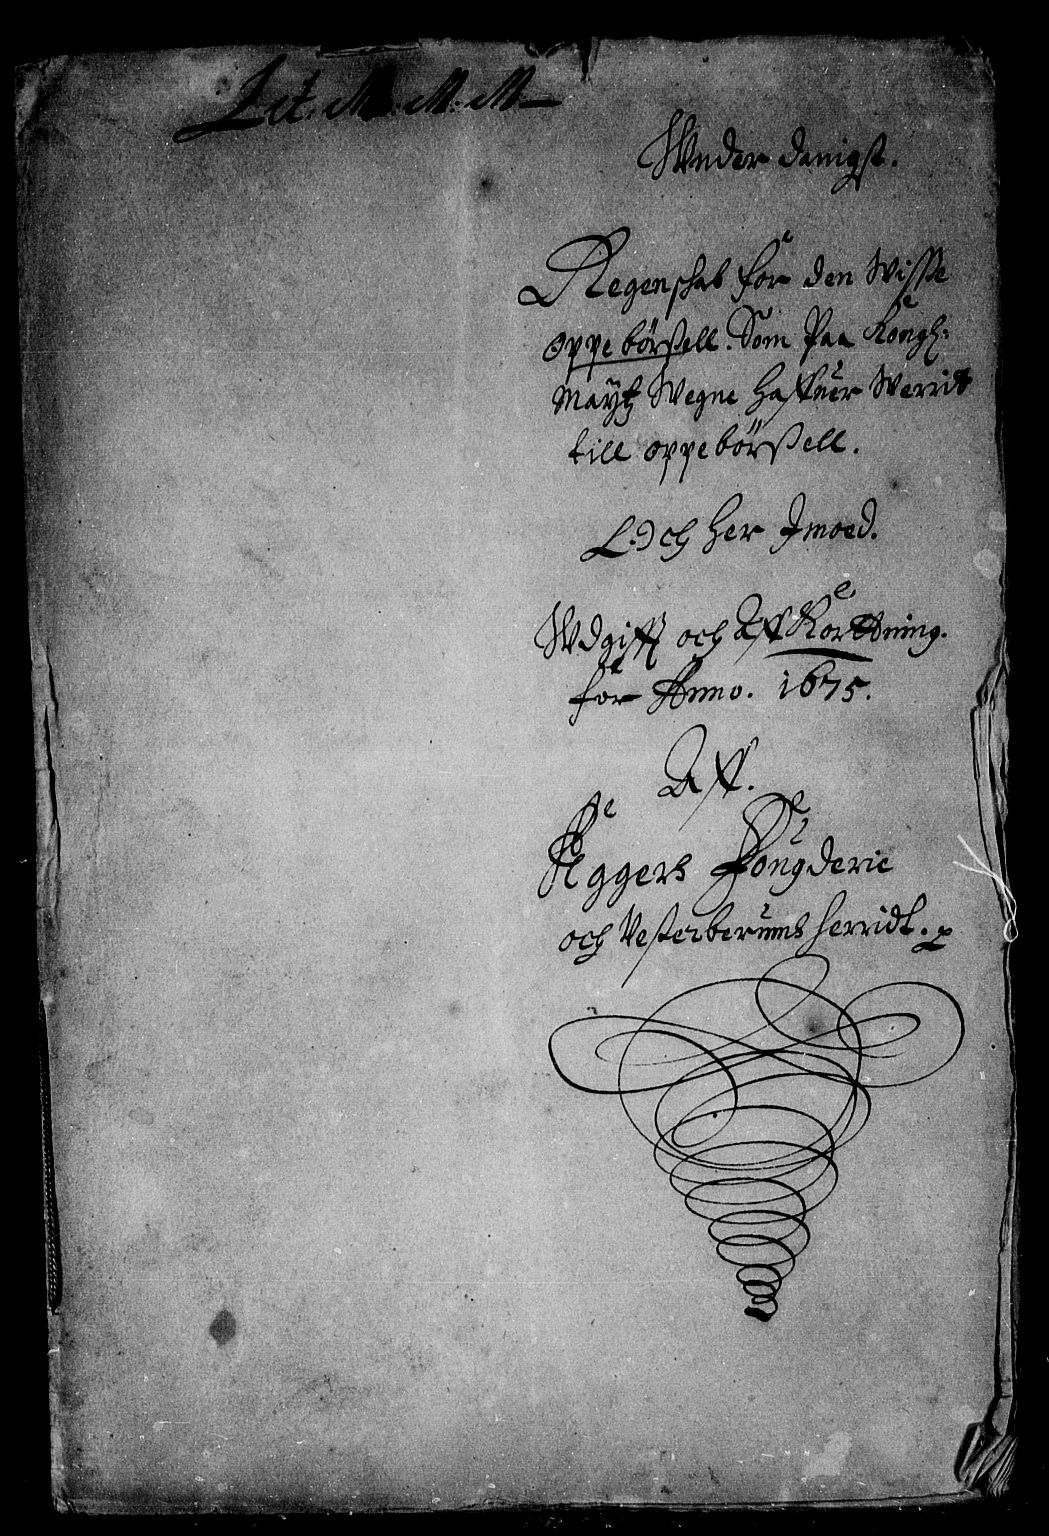 Lit. M. M. M
Wnder danigst.
Regenschab for den Wisse
oppe börßell. Som Paa Kongl:
Maytz Wegne haffuer Werrit
till oppebörßell.
Och her Imoed.
Wdgifft och Aff Kortning.
for Anno. 1675.
Aff.
Aggers Fougderie
och Vesterberums herridt.